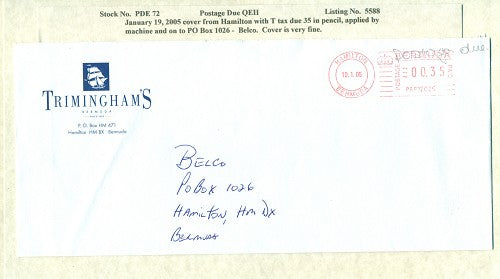 Stock No. PDE 72 Postage Due QEII Listing No. 5588
January 19, 2005 cover from Hamilton with T tax due 35 in pencil, applied by
machine and on to PO Box 1026 - Belco. Cover is very fine.
TRIMINGHAM'S
BERMUDA
P. O. Box HM 471
Hamilton HM BX Bermuda
HAMILTON
BERMUDA
due
00.35
POSTAGE
PAID
Belco
PO Box 1026
Hamilton, HM DX
Bermuda